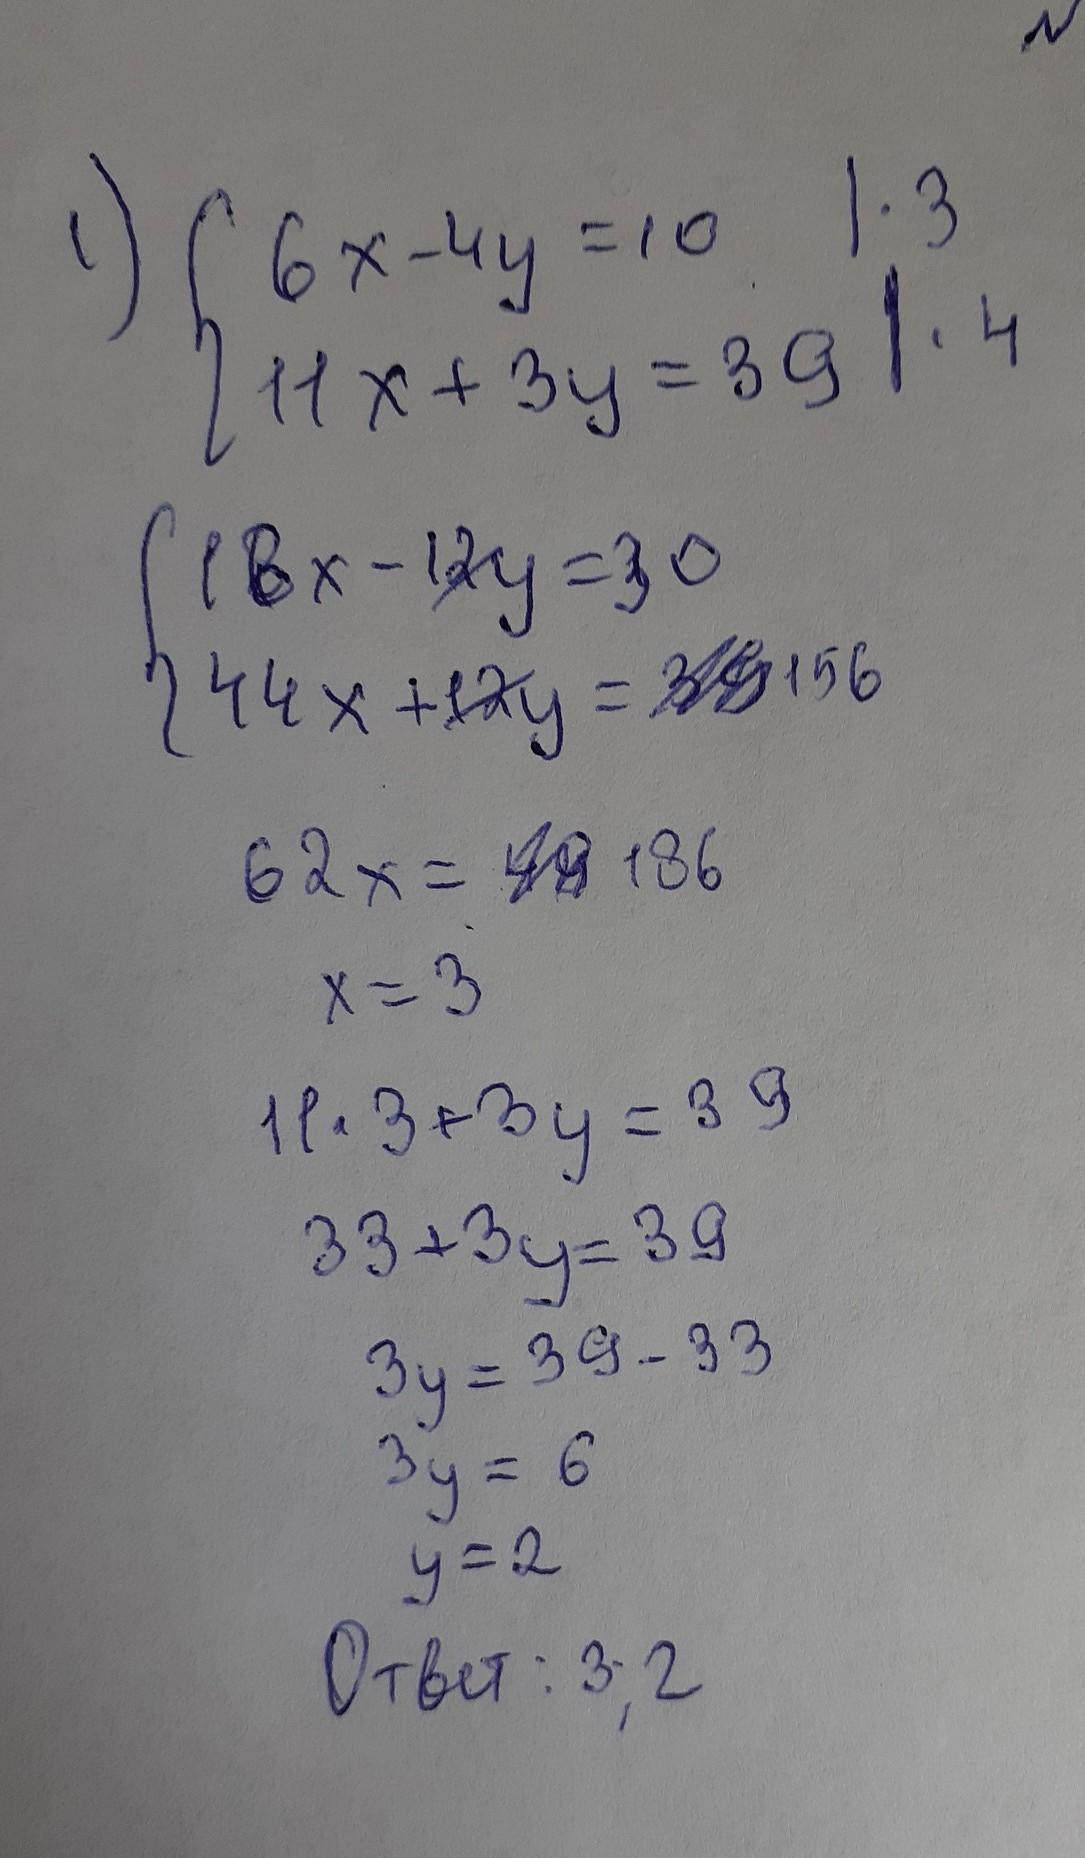 1) { 6x-4y=10 |·3
11x+3y=39 |·4
{ 18x-12y=30
44x+12y= 156
62x= 186
x=3
11·3+3y=39
33+3y=39
3y=39-33
3y=6
y=2
Ответ: 3;2